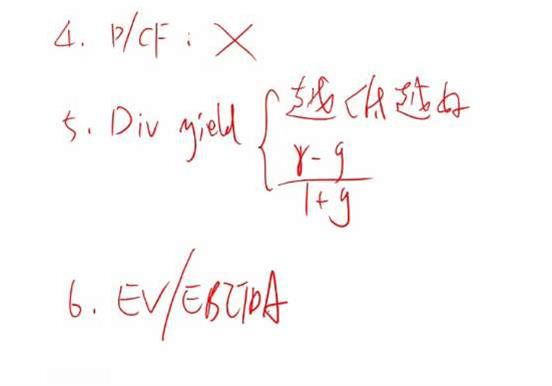 4. P/CF : X
5. Div yield { 越低越好
r-g
1+g
6. EV/EBITDA